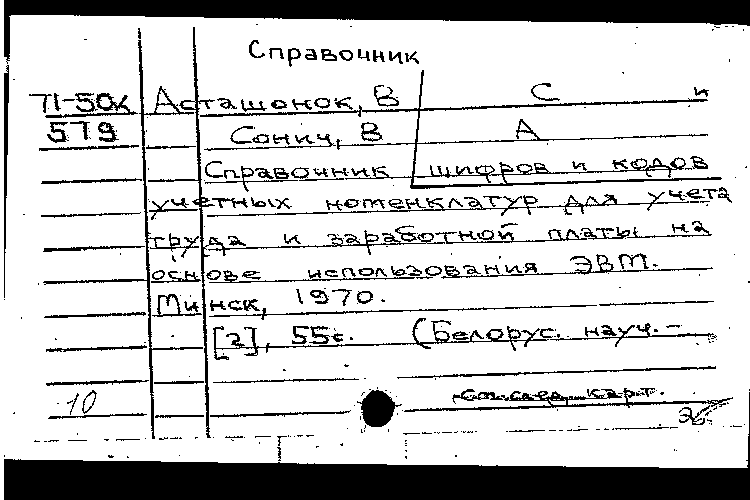 Справочник
71-50к Асташонок, В С и
579 Сонич, В А
Справочник шифров и кодов
учетных номенклатур для учета
труда и заработной платы на
основе использования ЭВМ.
Минск, 1970.
[2], 55с. (Белорус. науч.-
10 см.след. карт.